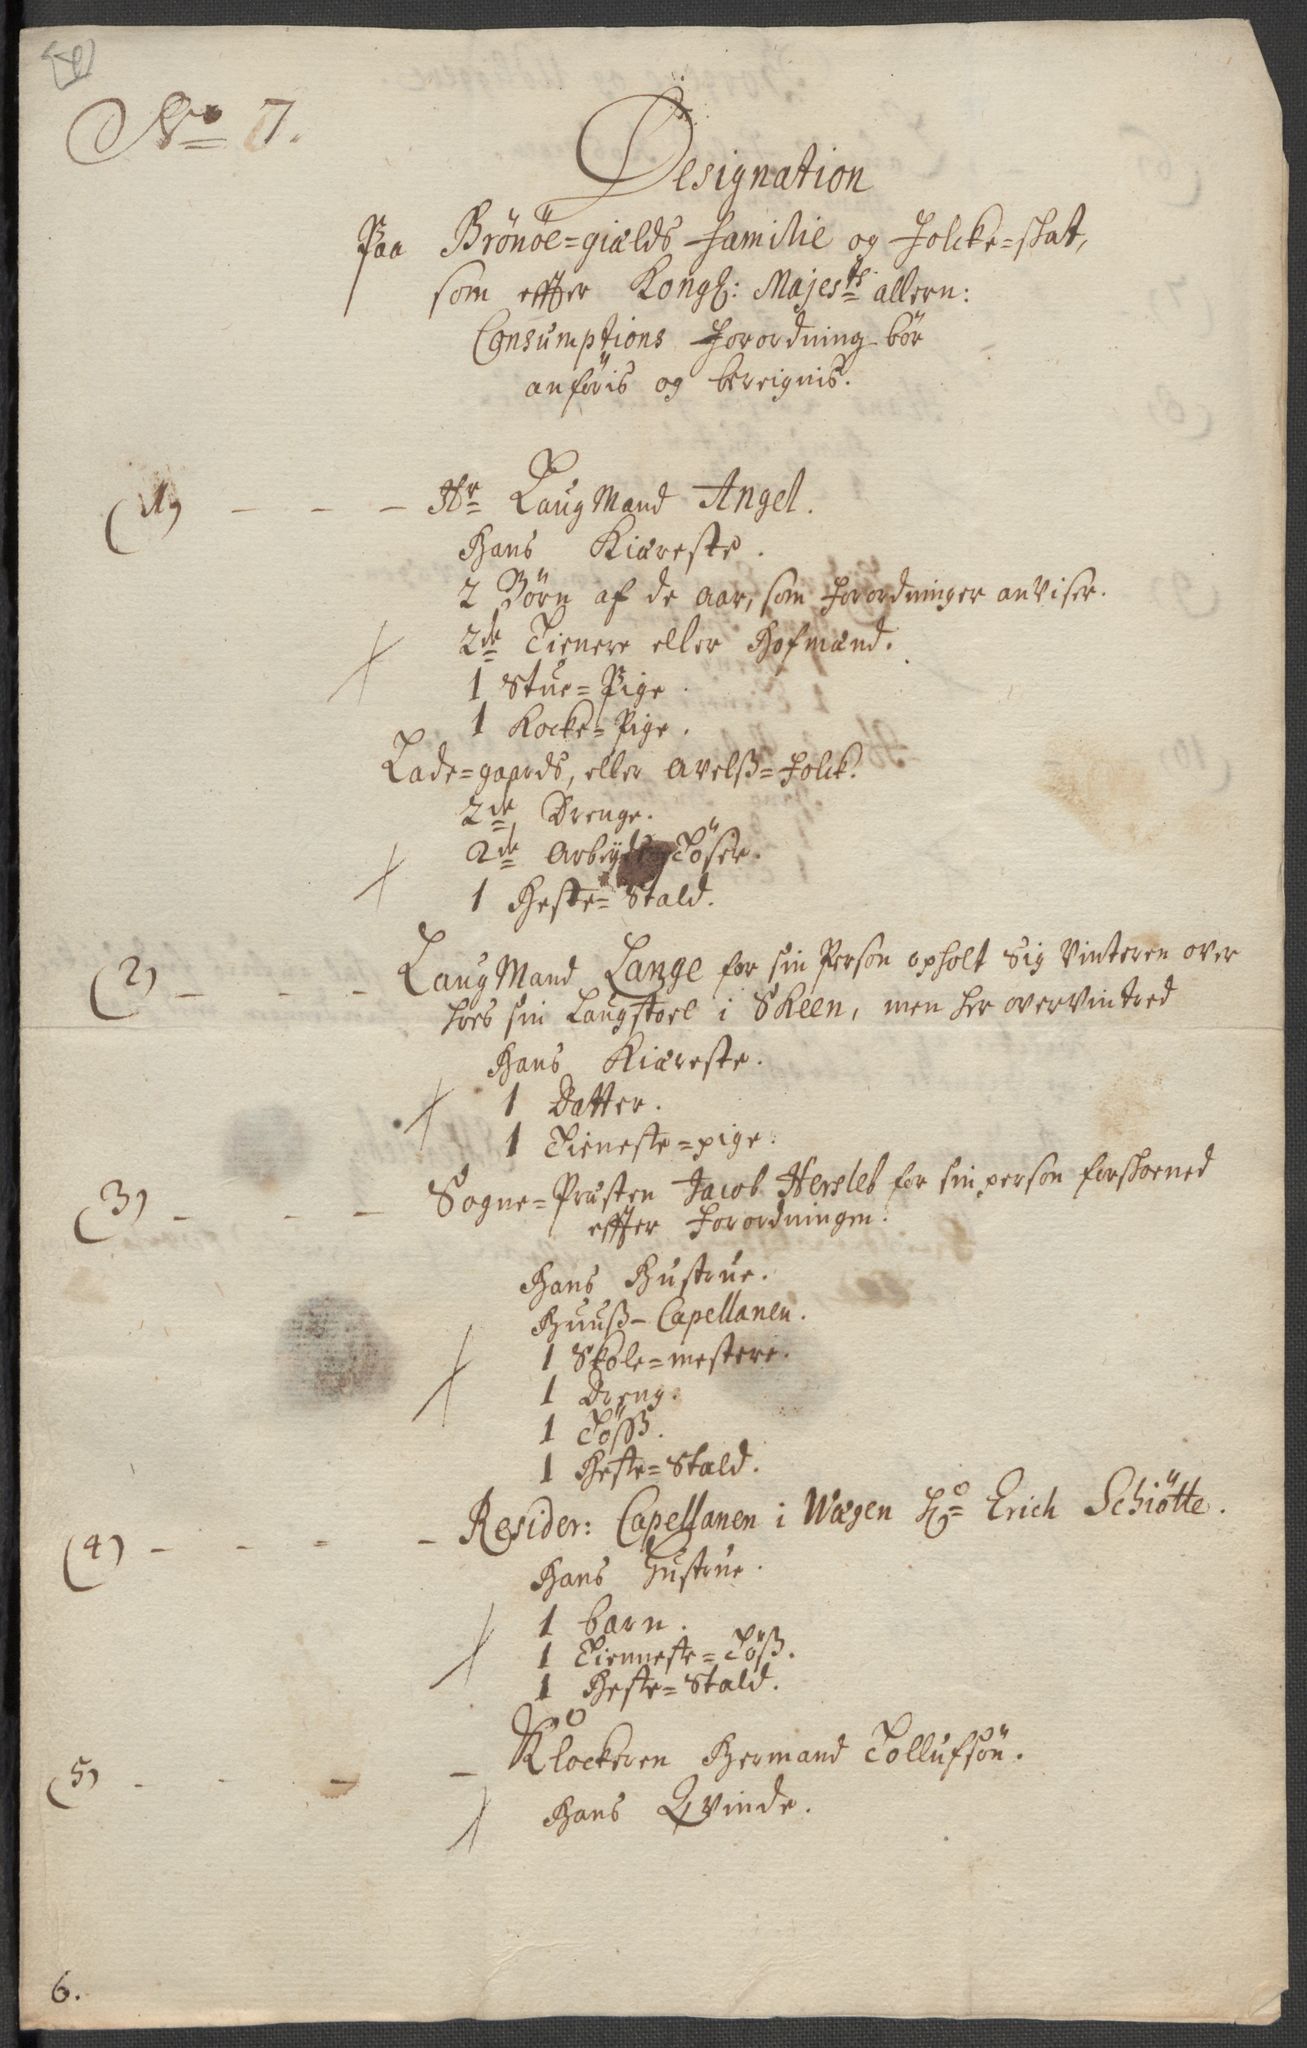 No 7.
Designation
Paa Brönöe=gields Familie og Folcke=skat,
som effter Kongl: Majestts allern:
Consumptions Forordning bör
anföris og bereignis.
(1) - - - Hr LaugMand Angel.
Hans Kiæreste.
2 Börn af de aar, som Forordninger anViser.
2de Tienere eller Hofmænd.
1 Stue=Pige.
1 Kocke=Pige.
Lade=gaards, eller Avelss=Folck.
2de Drenge.
2de Arbeyds Töser.
1 Heste=Stald.
(2) - - - LaugMand Lange for sin Person opholt sig Vinteren over
hoes sin Laugstoel i Skeen, men her overvintred
Hans Kiæreste.
1 Datter.
1 Tieneste=pige.
(3) - - - Sogne=Præsten Jacob Hersleb for sin person forskoened
effter Forordningen.
Hans Hustrue.
Huuss=Capellanen.
1 Skole=mestere.
1 Dreng.
1 Töss.
1 Heste=Stald.
(4) - - - - Resider: Capellanen i Wægen Hr Erich Schiötte.
Hans Hustrue.
1 barn.
1 Tienneste=Töss.
1 Heste=Stald.
(5) - - - - Klockeren Hermand Tollufsön.
Hans Qvinde.
6.